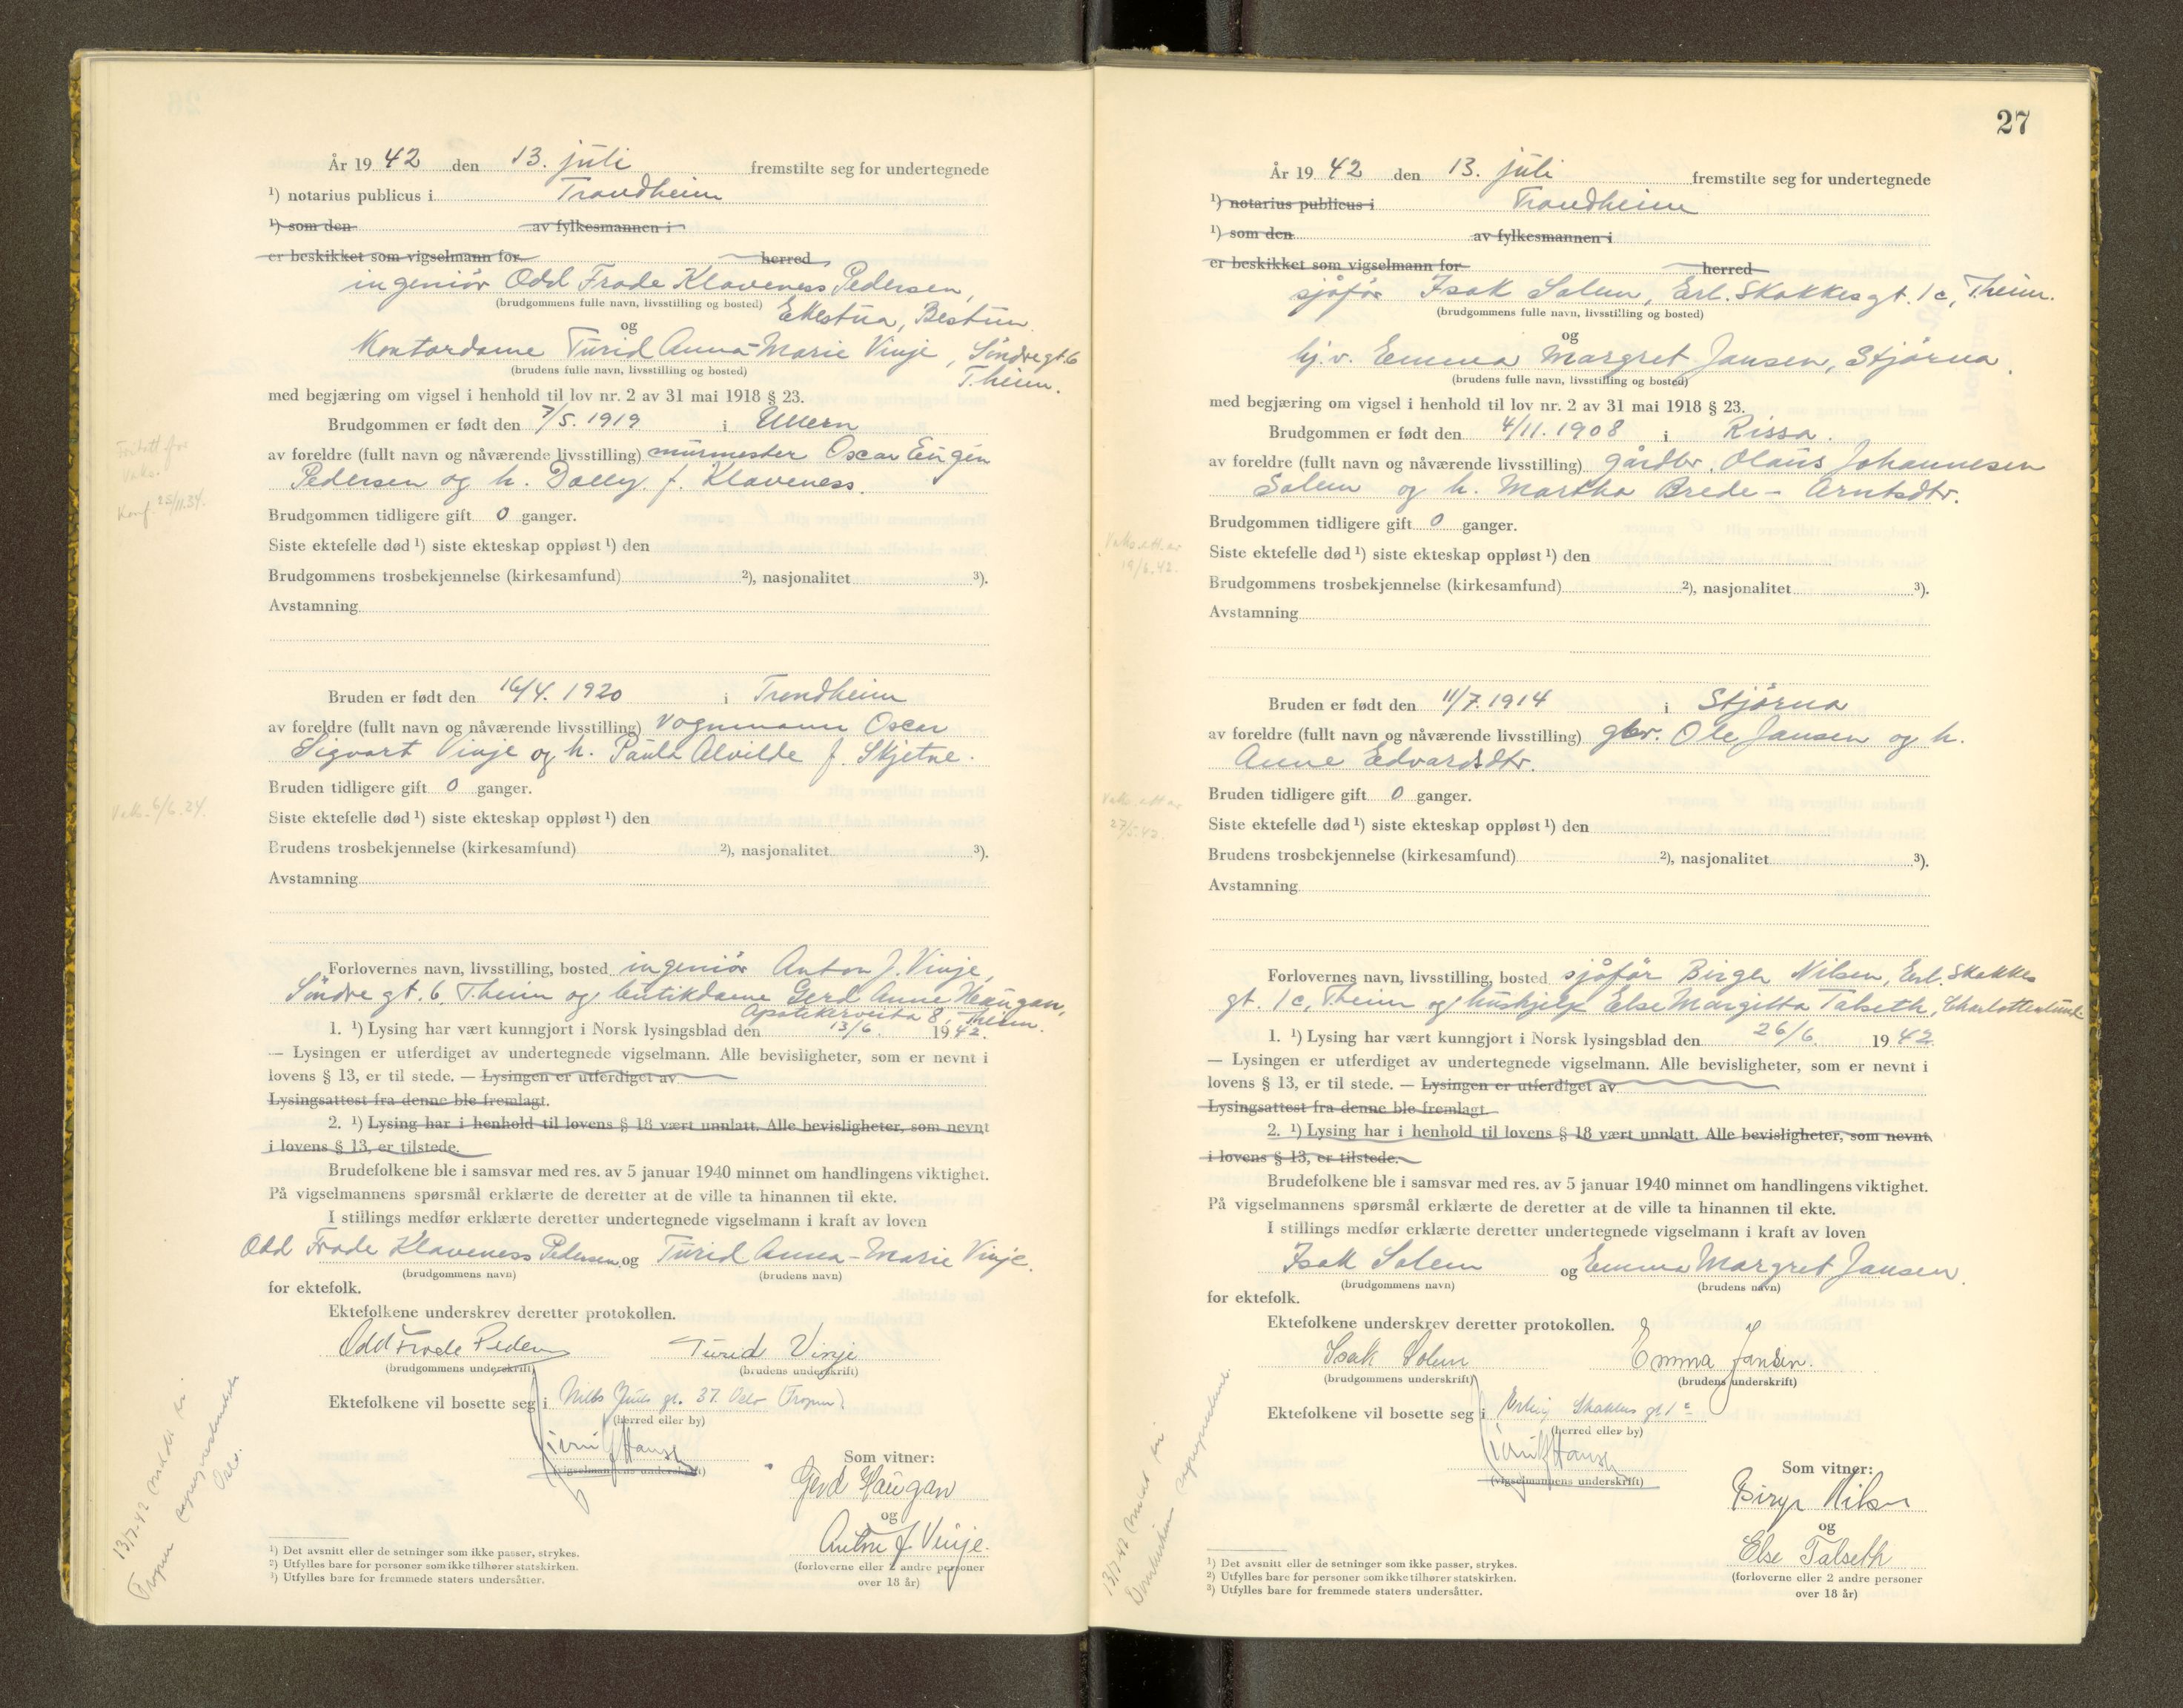 År 1942 den 13. juli fremstilte seg for undertegnede
¹) notarius publicus i Trondheim
¹) som den av fylkesmannen i
er beskikket som vigselmann for herred
ingeniör Odd Frode Klaveness Pedersen,
(brudgommens fulle navn, livsstilling og bosted) Ekestua, Bestun
og
Kontordame Turid Anna-Marie Vinje, Söndregt. 6
(brudens fulle navn, livsstilling og bosted) T.heim.
med begjæring om vigsel i henhold til lov nr. 2 av 31 mai 1918 § 23.
Brudgommen er født den 7/5. 1919 i Ullern
av foreldre (fullt navn og nåværende livsstilling) murmester Oscar Eugen
Pedersen og h. Dolly f. Klaveness.
Konf. 25/11.34.
Brudgommen tidligere gift 0 ganger.
Siste ektefelle død ¹) siste ekteskap oppløst ¹) den
Brudgommens trosbekjennelse (kirkesamfund) ²), nasjonalitet ³).
Avstamning
Bruden er født den 16/4. 1920 i Trondheim
av foreldre (fullt navn og nåværende livsstilling) vognmann Oscar
Sigvart Vinje og h. Paula Alvilde f. Skjetne.
Bruden tidligere gift 0 ganger.
Vaks. 6/6.24.
Siste ektefelle død ¹) siste ekteskap oppløst ¹) den
Brudens trosbekjennelse (kirkesamfund) ²), nasjonalitet ³).
Avstamning
Forlovernes navn, livsstilling, bosted ingeniör Anton J. Vinje,
Söndre gt. 6, T.heim og butikdame Gerd Anne Haugan,
Apotekerveita 8, T.heim.
1. ¹) Lysing har vært kunngjort i Norsk lysingsblad den 13/6. 1942.
— Lysingen er utferdiget av undertegnede vigselmann. Alle bevisligheter, som er nevnt i
lovens § 13, er til stede. — Lysingen er utferdiget av
Lysingsattest fra denne ble fremlagt.
2. ¹) Lysing har i henhold til lovens § 18 vært unnlatt. Alle bevisligheter, som nevnt
i lovens § 13, er tilstede.
Brudefolkene ble i samsvar med res. av 5 januar 1940 minnet om handlingens viktighet.
På vigselmannens spørsmål erklærte de deretter at de ville ta hinannen til ekte.
I stillings medfør erklærte deretter undertegnede vigselmann i kraft av loven
Odd Frode Klaveness Pedersen og Turid Anna-Marie Vinje.
(brudgommens navn) (brudens navn)
for ektefolk.
Ektefolkene underskrev deretter protokollen.
Odd Frode Pedersen Turid Vinje
(brudgommens underskrift) (brudens underskrift)
Ektefolkene vil bosette seg i Nills Juels gt. 37. Oslo (Frogner)
(herred eller by)
(vigselmannens underskrift)
Som vitner:
Gerd Haugan
og
Anton J. Vinje.
(forloverne eller 2 andre personer
over 18 år)
¹) Det avsnitt eller de setninger som ikke passer, strykes.
²) Utfylles bare for personer som ikke tilhører statskirken.
³) Utfylles bare for fremmede staters undersåtter.
13/7-42 meldt til
Frogner sogneprestembete
Oslo.
27
År 1942 den 13. juli fremstilte seg for undertegnede
¹) notarius publicus i Trondheim
¹) som den av fylkesmannen i
er beskikket som vigselmann for herred
sjåför Isak Solem, Erl. Skakkesgt. 1c, T.heim.
(brudgommens fulle navn, livsstilling og bosted)
og
hj.v. Emma Margret Jansen, Stjörna.
(brudens fulle navn, livsstilling og bosted)
med begjæring om vigsel i henhold til lov nr. 2 av 31 mai 1918 § 23.
Brudgommen er født den 4/11. 1908 i Rissa.
av foreldre (fullt navn og nåværende livsstilling) gårdbr. Olaus Johannesen
Solem og h. Martha Brede - Arntsdtr.
Brudgommen tidligere gift 0 ganger.
Siste ektefelle død ¹) siste ekteskap oppløst ¹) den
Brudgommens trosbekjennelse (kirkesamfund) ²), nasjonalitet ³).
Avstamning
Bruden er født den 11/7. 1914 i Stjörna
av foreldre (fullt navn og nåværende livsstilling) gbr. Ole Jansen og h.
Anne Edvardsdtr.
Bruden tidligere gift 0 ganger.
Siste ektefelle død ¹) siste ekteskap oppløst ¹) den
Brudens trosbekjennelse (kirkesamfund) ²), nasjonalitet ³).
Avstamning
Forlovernes navn, livsstilling, bosted sjåför Birger Nilsen, Erl. Skakkes
gt. 1c, T.heim og hushjelp Else Margitta Talseth, Charlottenlund
1. ¹) Lysing har vært kunngjort i Norsk lysingsblad den 26/6. 1942.
— Lysingen er utferdiget av undertegnede vigselmann. Alle bevisligheter, som er nevnt i
lovens § 13, er til stede. — Lysingen er utferdiget av
Lysingsattest fra denne ble fremlagt
2. ¹) Lysing har i henhold til lovens § 18 vært unnlatt. Alle bevisligheter, som nevnt,
i lovens § 13, er tilstede.
Brudefolkene ble i samsvar med res. av 5 januar 1940 minnet om handlingens viktighet.
På vigselmannens spørsmål erklærte de deretter at de ville ta hinannen til ekte.
I stillings medfør erklærte deretter undertegnede vigselmann i kraft av loven
Isak Solem og Emma Margret Jansen.
(brudgommens navn) (brudens navn)
for ektefolk.
Ektefolkene underskrev deretter protokollen.
Isak Solem Emma Jansen.
(brudgommens underskrift) (brudens underskrift)
Ektefolkene vil bosette seg i Erling Skakkes gt 1c
(herred eller by)
(vigselmannens underskrift)
Som vitner:
Birger Nilsen
og
Else Talseth
(forloverne eller 2 andre personer
over 18 år)
¹) Det avsnitt eller de setninger som ikke passer, strykes.
²) Utfylles bare for personer som ikke tilhører statskirken.
³) Utfylles bare for fremmede staters undersåtter.
13/7-42 meldt til